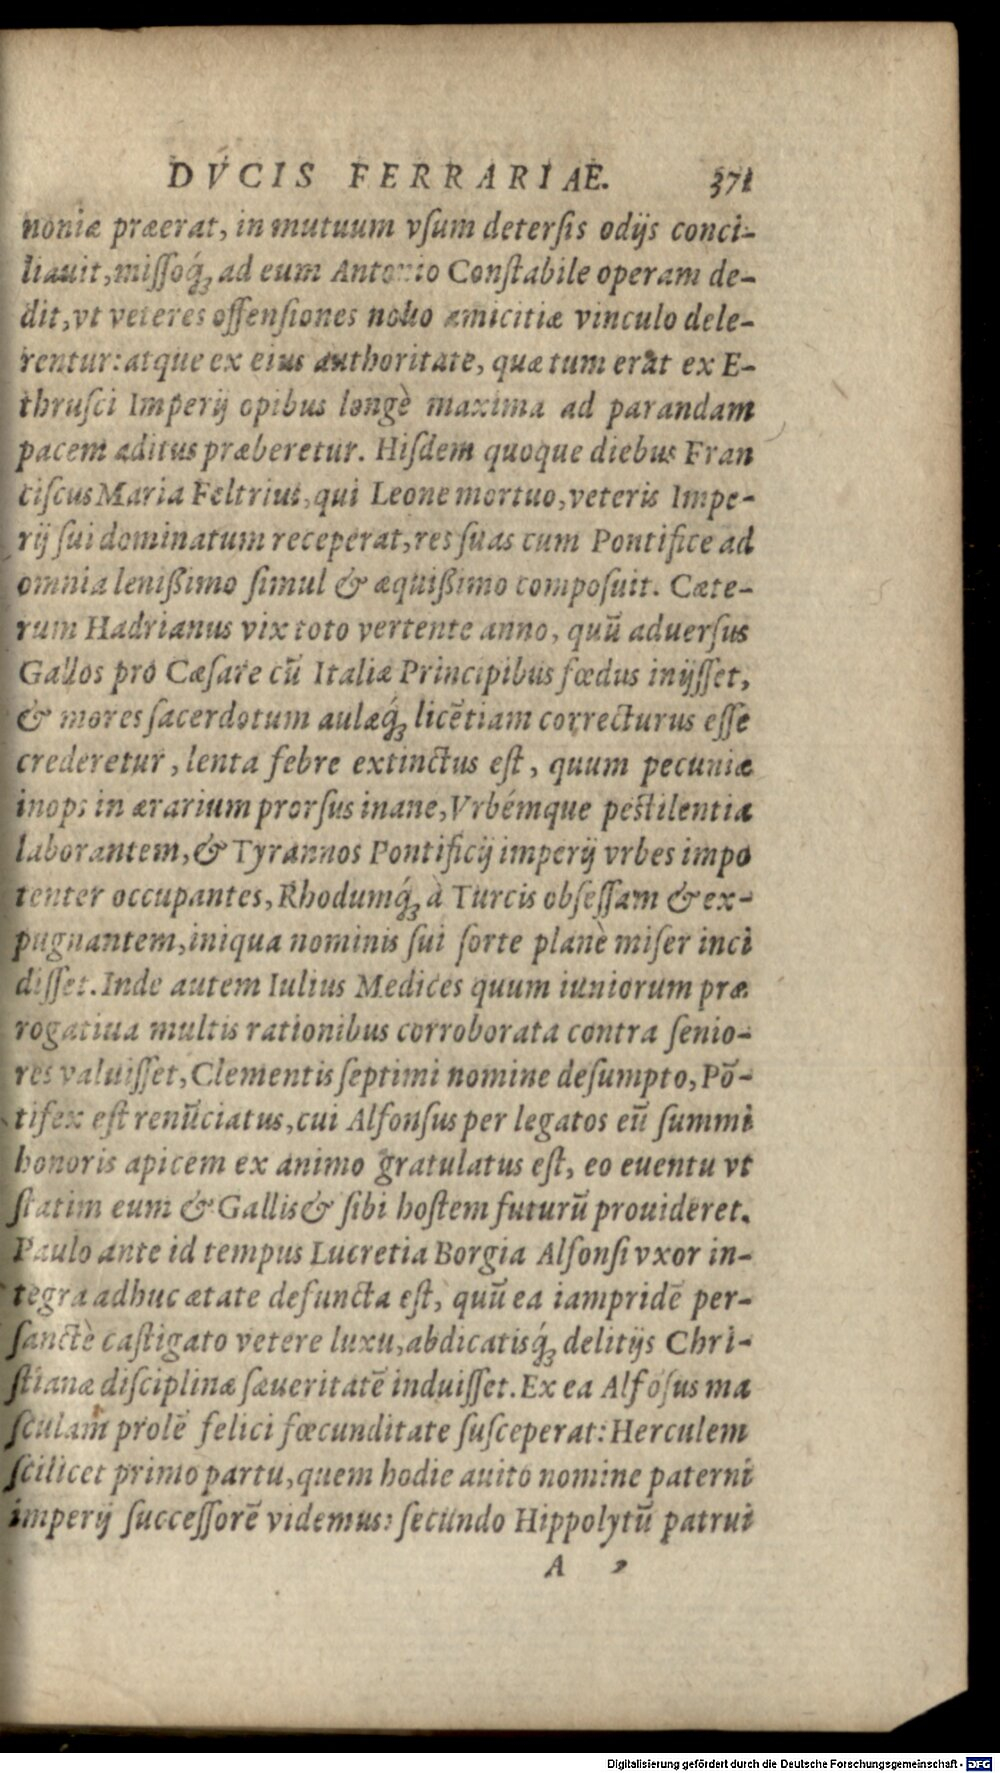 DVCIS FERRARIAE. 371
noniæ præerat, in mutuum vſum deterſis odijs conci-
liauit, miſſoq́; ad eum Antonio Conſtabile operam de-
dit, vt veteres offenſiones nouo amicitiæ vinculo dele-
rentur: atque ex eius authoritate, quæ tum erat ex E-
thruſci Imperij opibus longè maxima ad parandam
pacem aditus præberetur. Hiſdem quoque diebus Fran
ciſcus Maria Feltrius, qui Leone mortuo, veteris Impe-
rij ſui dominatum receperat, res ſuas cum Pontifice ad
omnia leniſſimo ſimul & æquiſſimo compoſuit. Cæte-
rum Hadrianus vix toto vertente anno, quū aduerſus
Gallos pro Cæſare cū Italiæ Principibus fœdus inijſſet,
& mores ſacerdotum aulæq́; licētiam correcturus eſſe
crederetur, lenta febre extinctus eſt, quum pecuniæ
inops in ærarium prorſus inane, Vrbémque peſtilentia
laborantem, & Tyrannos Pontificij imperij vrbes impo
tenter occupantes, Rhodumq́; à Turcis obſeſſam & ex-
pugnantem, iniqua nominis ſui ſorte planè miſer inci
diſſet. Inde autem Iulius Medices quum iuniorum præ
rogatiua multis rationibus corroborata contra ſenio-
res valuiſſet, Clementis ſeptimi nomine deſumpto, Pō-
tifex eſt renūciatus, cui Alfonſus per legatos eū ſummi
honoris apicem ex animo gratulatus eſt, eo euentu vt
ſtatim eum & Gallis & ſibi hoſtem futurū prouideret.
Paulo ante id tempus Lucretia Borgia Alfonſi vxor in-
tegra adhuc ætate defuncta eſt, quū ea iampridē per-
ſanctè caſtigato vetere luxu, abdicatisq́; delitijs Chri-
ſtianæ diſciplinæ ſæueritatē induiſſet. Ex ea Alfōſus ma
ſculam prolē felici fœcunditate ſuſceperat: Herculem
ſcilicet primo partu, quem hodie auito nomine paterni
imperij ſucceſſorē videmus: ſecundo Hippolytū patrui
A 2
Digitalisierung gefördert durch die Deutsche Forschungsgemeinschaft - DFG